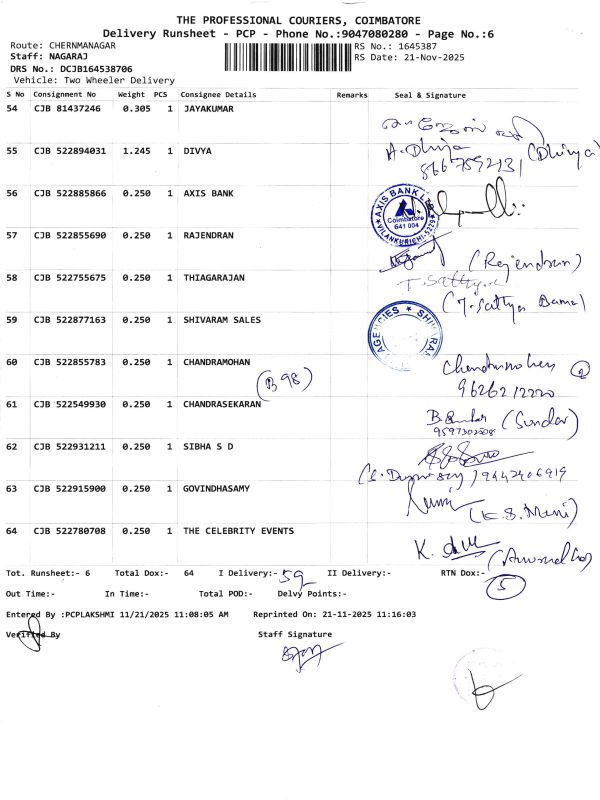 THE PROFESSIONAL COURIERS, COIMBATORE
Delivery Runsheet - PCP - Phone No.:9047080280 - Page No.:6
Route: CHERNMANAGAR
RS No.: 1645387
Staff: NAGARAJ
RS Date: 21-Nov-2025
DRS No.: DCJB164538706
Vehicle: Two Wheeler Delivery
S No Consignment No Weight PCS Consignee Details Remarks Seal & Signature
54 CJB 81437246 0.305 1 JAYAKUMAR
55 CJB 522894031 1.245 1 DIVYA A. Dhivya (Dhivya)
8667592131
56 CJB 522885866 0.250 1 AXIS BANK
AXIS BANK LTD
Coimbatore
641 004
57 CJB 522855690 0.250 1 RAJENDRAN
(Rajendran)
58 CJB 522755675 0.250 1 THIAGARAJAN
T. Sathya
(T. Sathya Bama)
59 CJB 522877163 0.250 1 SHIVARAM SALES
AGENCIES * SHIVARAM
60 CJB 522855783 0.250 1 CHANDRAMOHAN
(B 98)
61 CJB 522549930 0.250 1 CHANDRASEKARAN
(Sundar)
9597302508
62 CJB 522931211 0.250 1 SIBHA S D
9442406919
63 CJB 522915900 0.250 1 GOVINDHASAMY
(K.S. Mani)
64 CJB 522780708 0.250 1 THE CELEBRITY EVENTS
Tot. Runsheet:- 6 Total Dox:- 64 I Delivery:- 59 II Delivery:- RTN Dox:- 5
Out Time:- In Time:- Total POD:- Delvy Points:-
Entered By :PCPLAKSHMI 11/21/2025 11:08:05 AM Reprinted On: 21-11-2025 11:16:03
Verified By Staff Signature